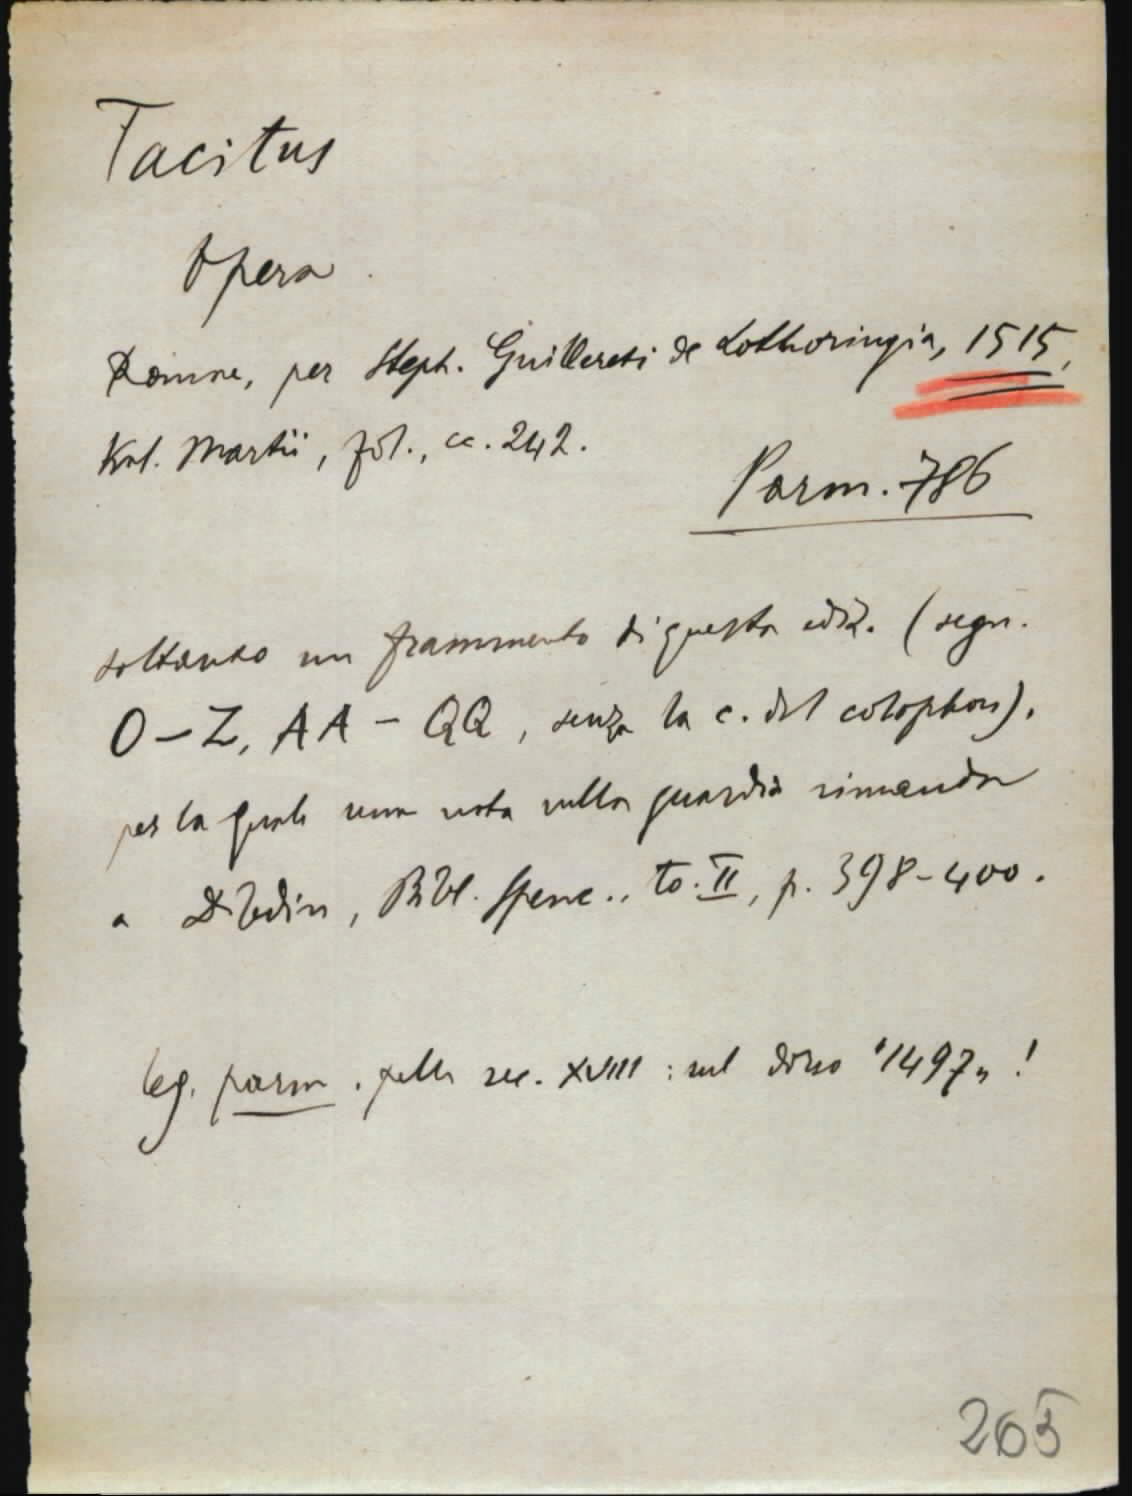 Tacitus
Opera
Romae, per Steph. Guillereti de Lothoringia, 1515,
Kal. Martii, fol., cc. 242.
Parm. 786
soltanto un frammento di questa ediz. (segn.
O-Z, AA - QQ, senza la c. del colophon),
per la quale una nota sulla guardia rimanda
a Dibdin, Bibl. Spenc., to. II, p. 398-400.
leg. parm. pelle sec. XVIII: sul dorso "1497" !
265